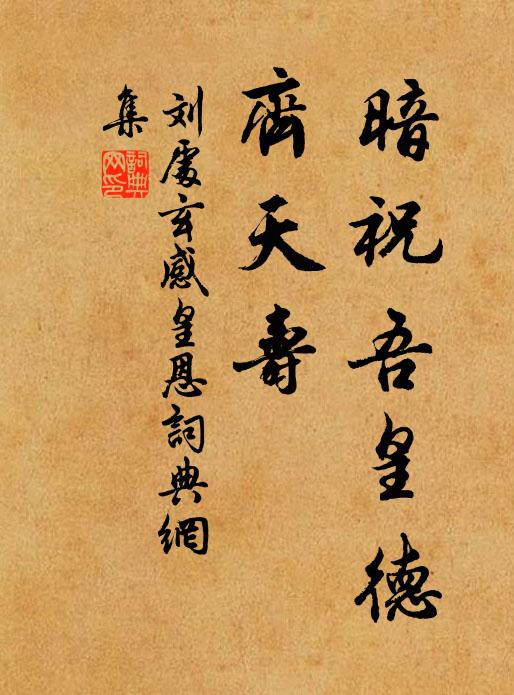 暗祝吾皇德
齊天壽
刘處玄感皇恩詞典網
集
詞典
网